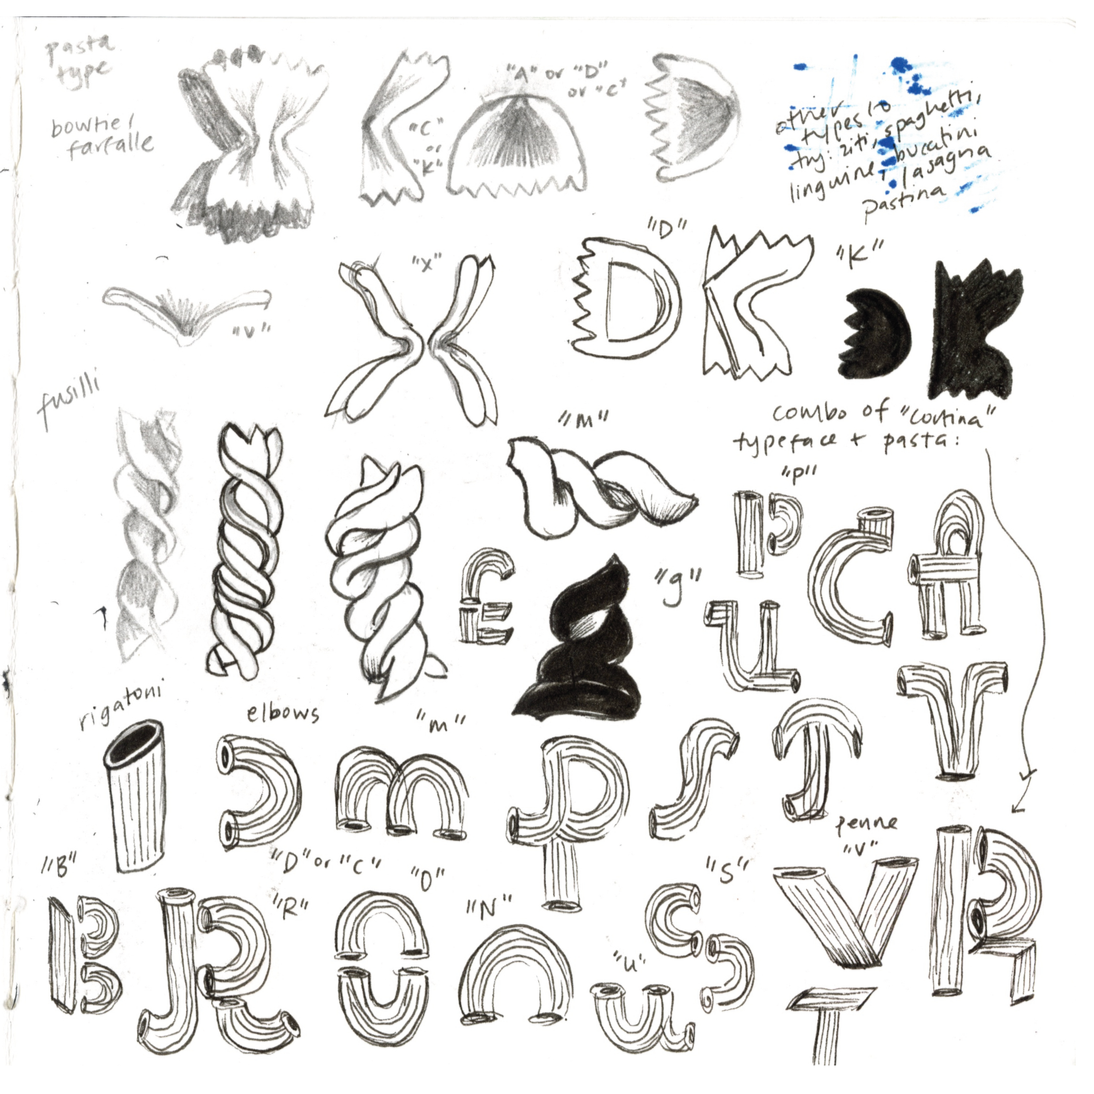 pasta
type
bowtie/
farfalle
"C"
or
"K"
"A" or "D"
or "C"
other
types to
try: ziti, spaghetti,
linguine, bucatini
lasagna
pastina
"V"
"X"
"D"
"K"
fusilli
"m"
combo of "Cortina"
typeface + pasta:
"P"
"g"
rigatoni
elbows
"m"
"D" or "C"
penne
"V"
"B"
"R"
"O"
"N"
"U"
"S"